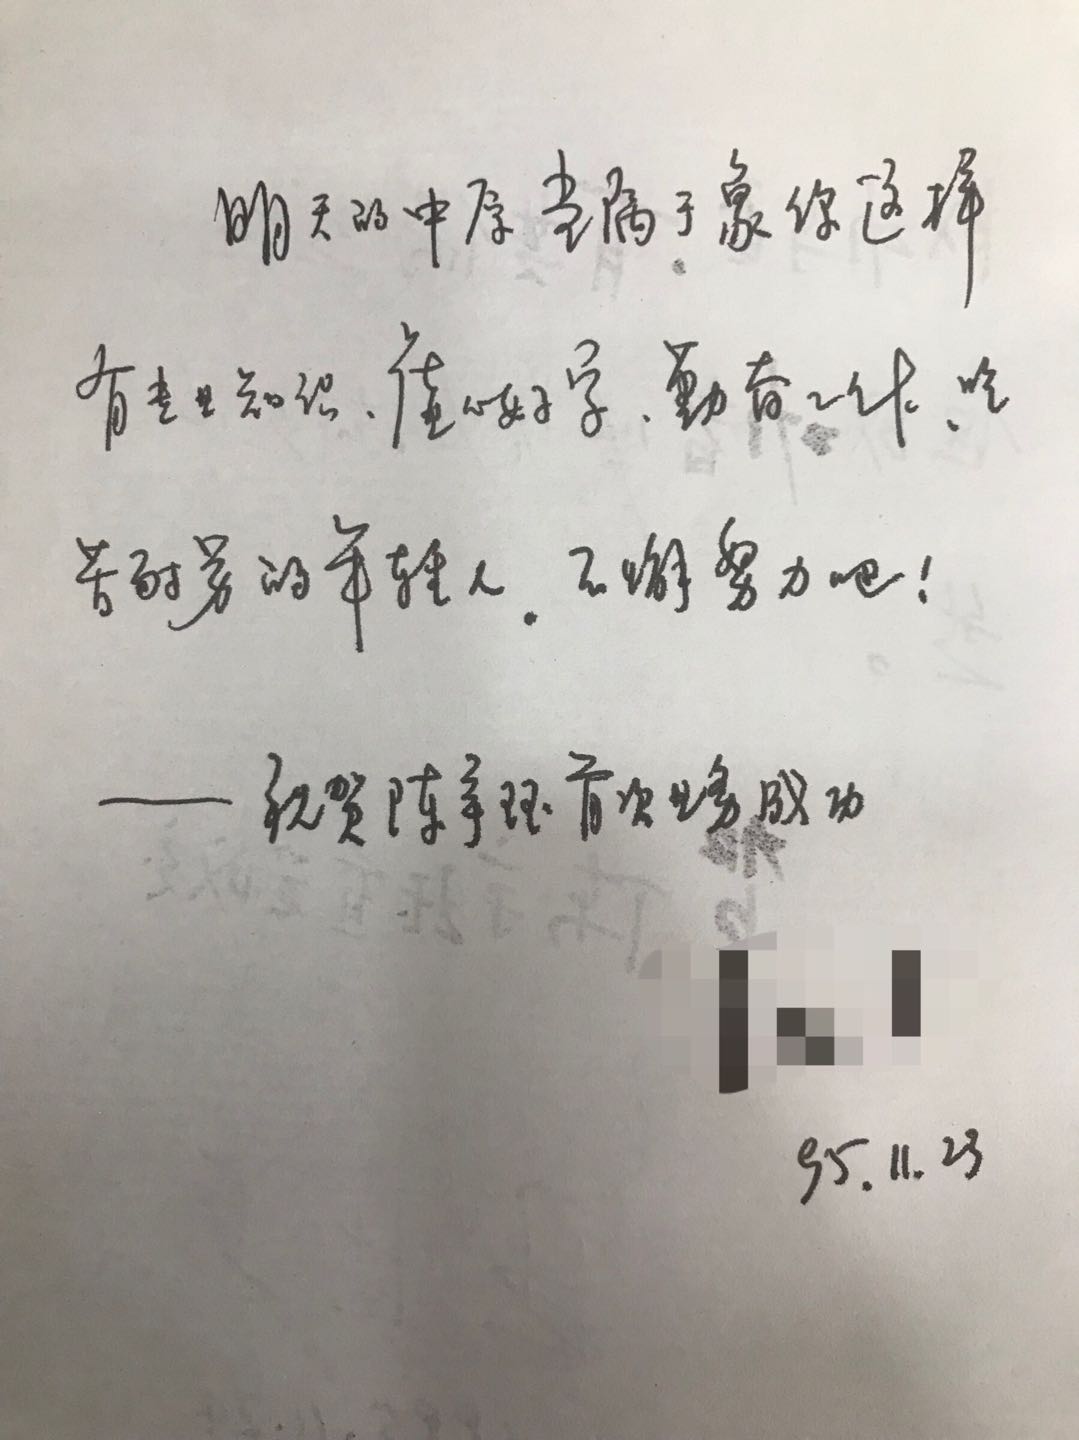 明天的中原当属于象你这样
有专业知识、虚心好学、勤奋工作、吃
苦耐劳的年轻人。不懈努力吧!
——祝贺陈宇珏首次业务成功
95.11.23